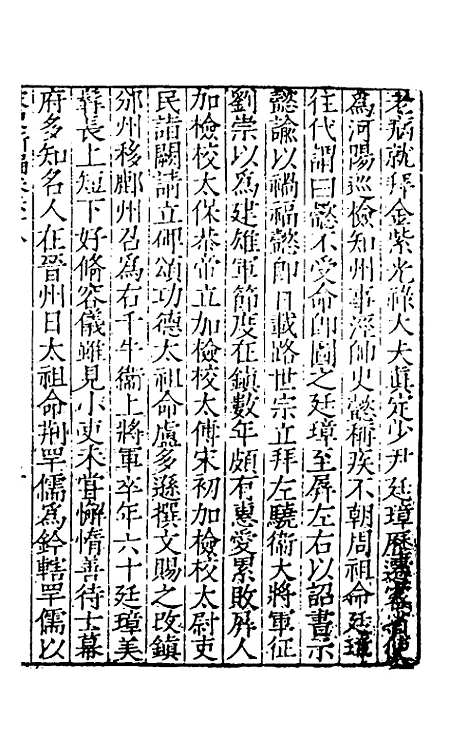 老病就拜金紫光祿大夫眞定少尹廷璋歷遷客省使
爲河陽巡檢知州事涇帥史懿稱疾不朝周祖命廷璋
往代謂曰懿不受命卽圖之廷璋至屏左右以詔書示
懿諭以禍福懿卽日載路世宗立拜左驍衛大將軍征
劉崇以爲建雄軍節度在鎮數年頗有惠愛累敗幷人
加檢校太保恭帝立加檢校太傅宋初加檢校太尉吏
民詣闕請立碑頌功德太祖命盧多遜撰文賜之改鎮
邠州移鄜州召爲右千牛衞上將軍卒年六十廷璋美
髯長上短下好脩容儀雖見小吏未甞懈惰善待士幕
府多知名人在晉州日太祖命荆罕儒爲鈐轄罕儒以